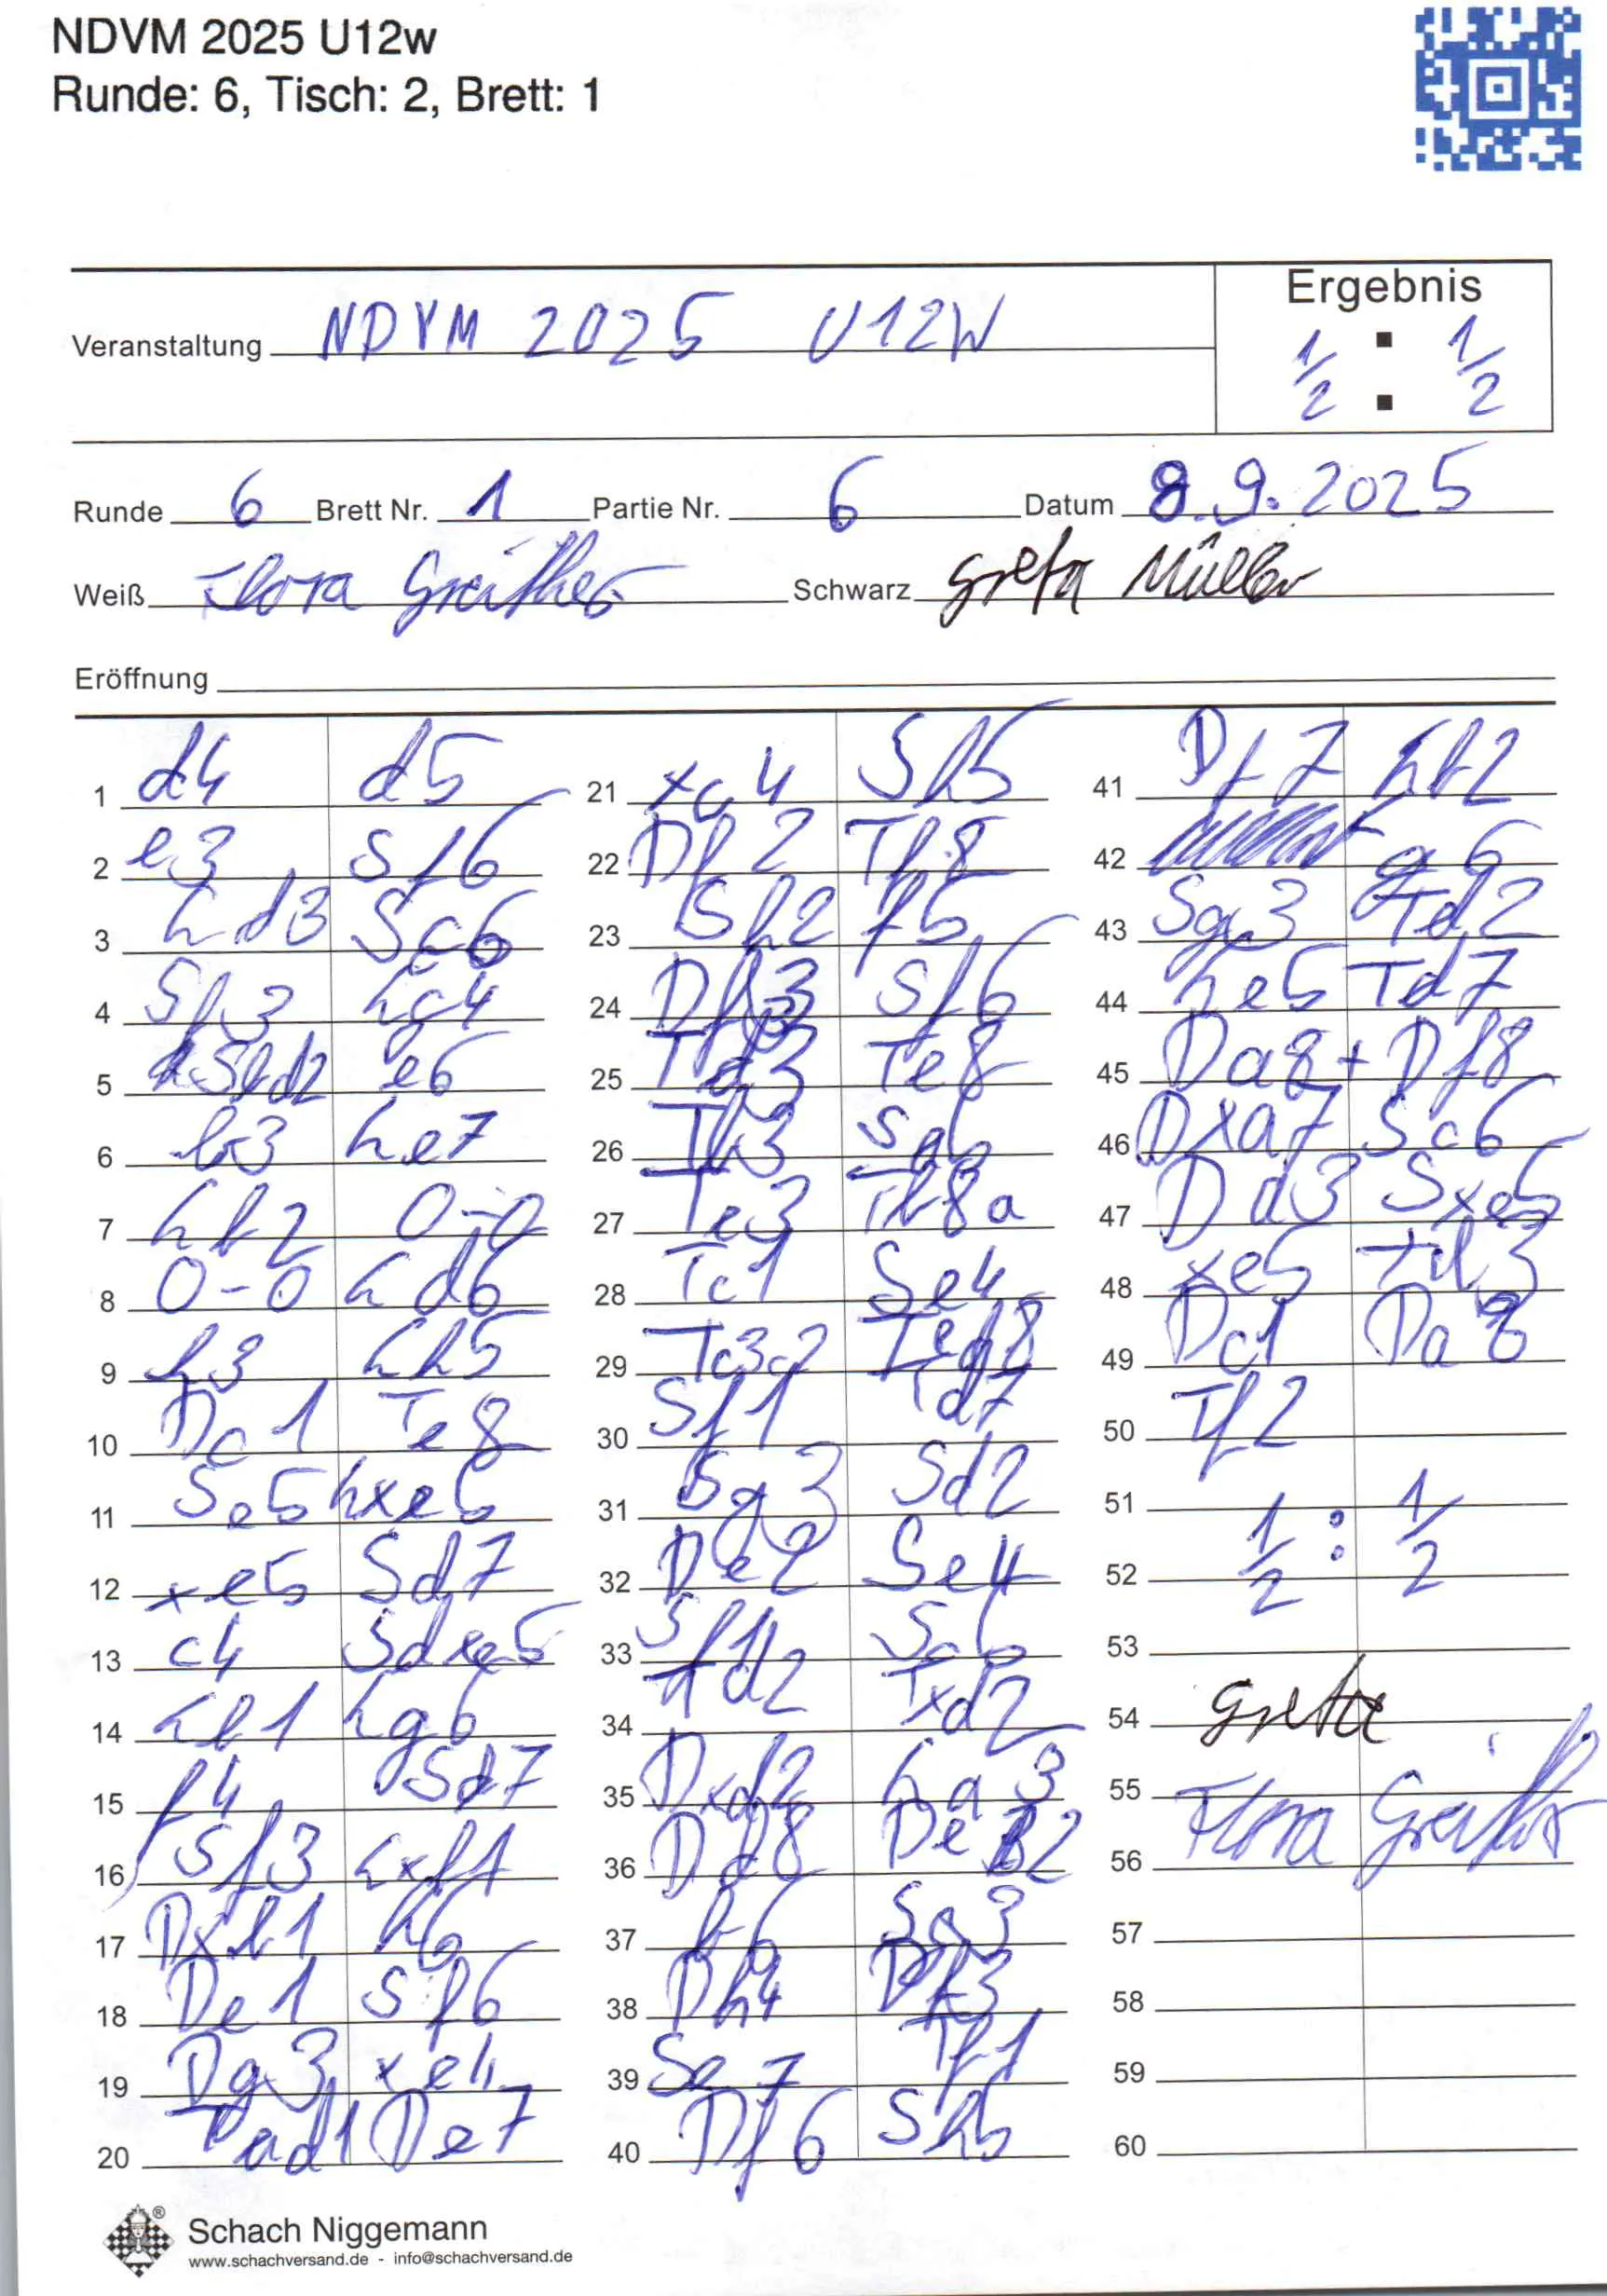 NDVM 2025 U12w
Runde: 6, Tisch: 2, Brett: 1
Ergebnis
Veranstaltung NDVM 2025 U12W
1/2 : 1/2
Runde 6 Brett Nr. 1 Partie Nr. 6 Datum 8.9.2025
Weiß Flora Greither Schwarz Greta Müller
Eröffnung
1 d4 d5
2 e3 Sf6
3 Ld3 Sc6
4 Sf3 Lg4
5 Sbd2 e6
6 b3 Le7
7 Lb2 0-0
8 0-0 Ld6
9 h3 Lh5
10 Dc1 Te8
11 Se5 Lxe5
12 xe5 Sd7
13 c4 Sdxe5
14 Lb1 Lg6
15 f4 Sd7
16 Sf3 Lxb1
17 Dxb1 h6
18 De1 Sf6
19 Dg3 xc4
20 Tad1 De7
21 xc4 Sh5
22 Df2 Tf8
23 Sh2 f5
24 Df3 Sf6
25 Td3 Te8
26 Tb3
27 Tc3 Tb8a
28 Tc1 Se4
29 Tc3c2 Ted8
30 Sf1 Td7
31 Sg3 Sd2
32 De2 Se4
33 Sf1 Sc5
34 Td2 Txd2
35 Dxd2
36 Dd8
37
38 Dh4
39
40 Df6 Sh5
41 Df7
42 g6
43 Sg3 Td2
44 Le5 Td7
45 Da8+ Df8
46 Dxa7 Sc6
47 Sxe5
48 xe5 Td3
49 Dc1 Da8
50 Tf2
51
52 1/2 : 1/2
53
54 Greta
55
56 Flora Greither
57
58
59
60
Schach Niggemann
www.schachversand.de - info@schachversand.de